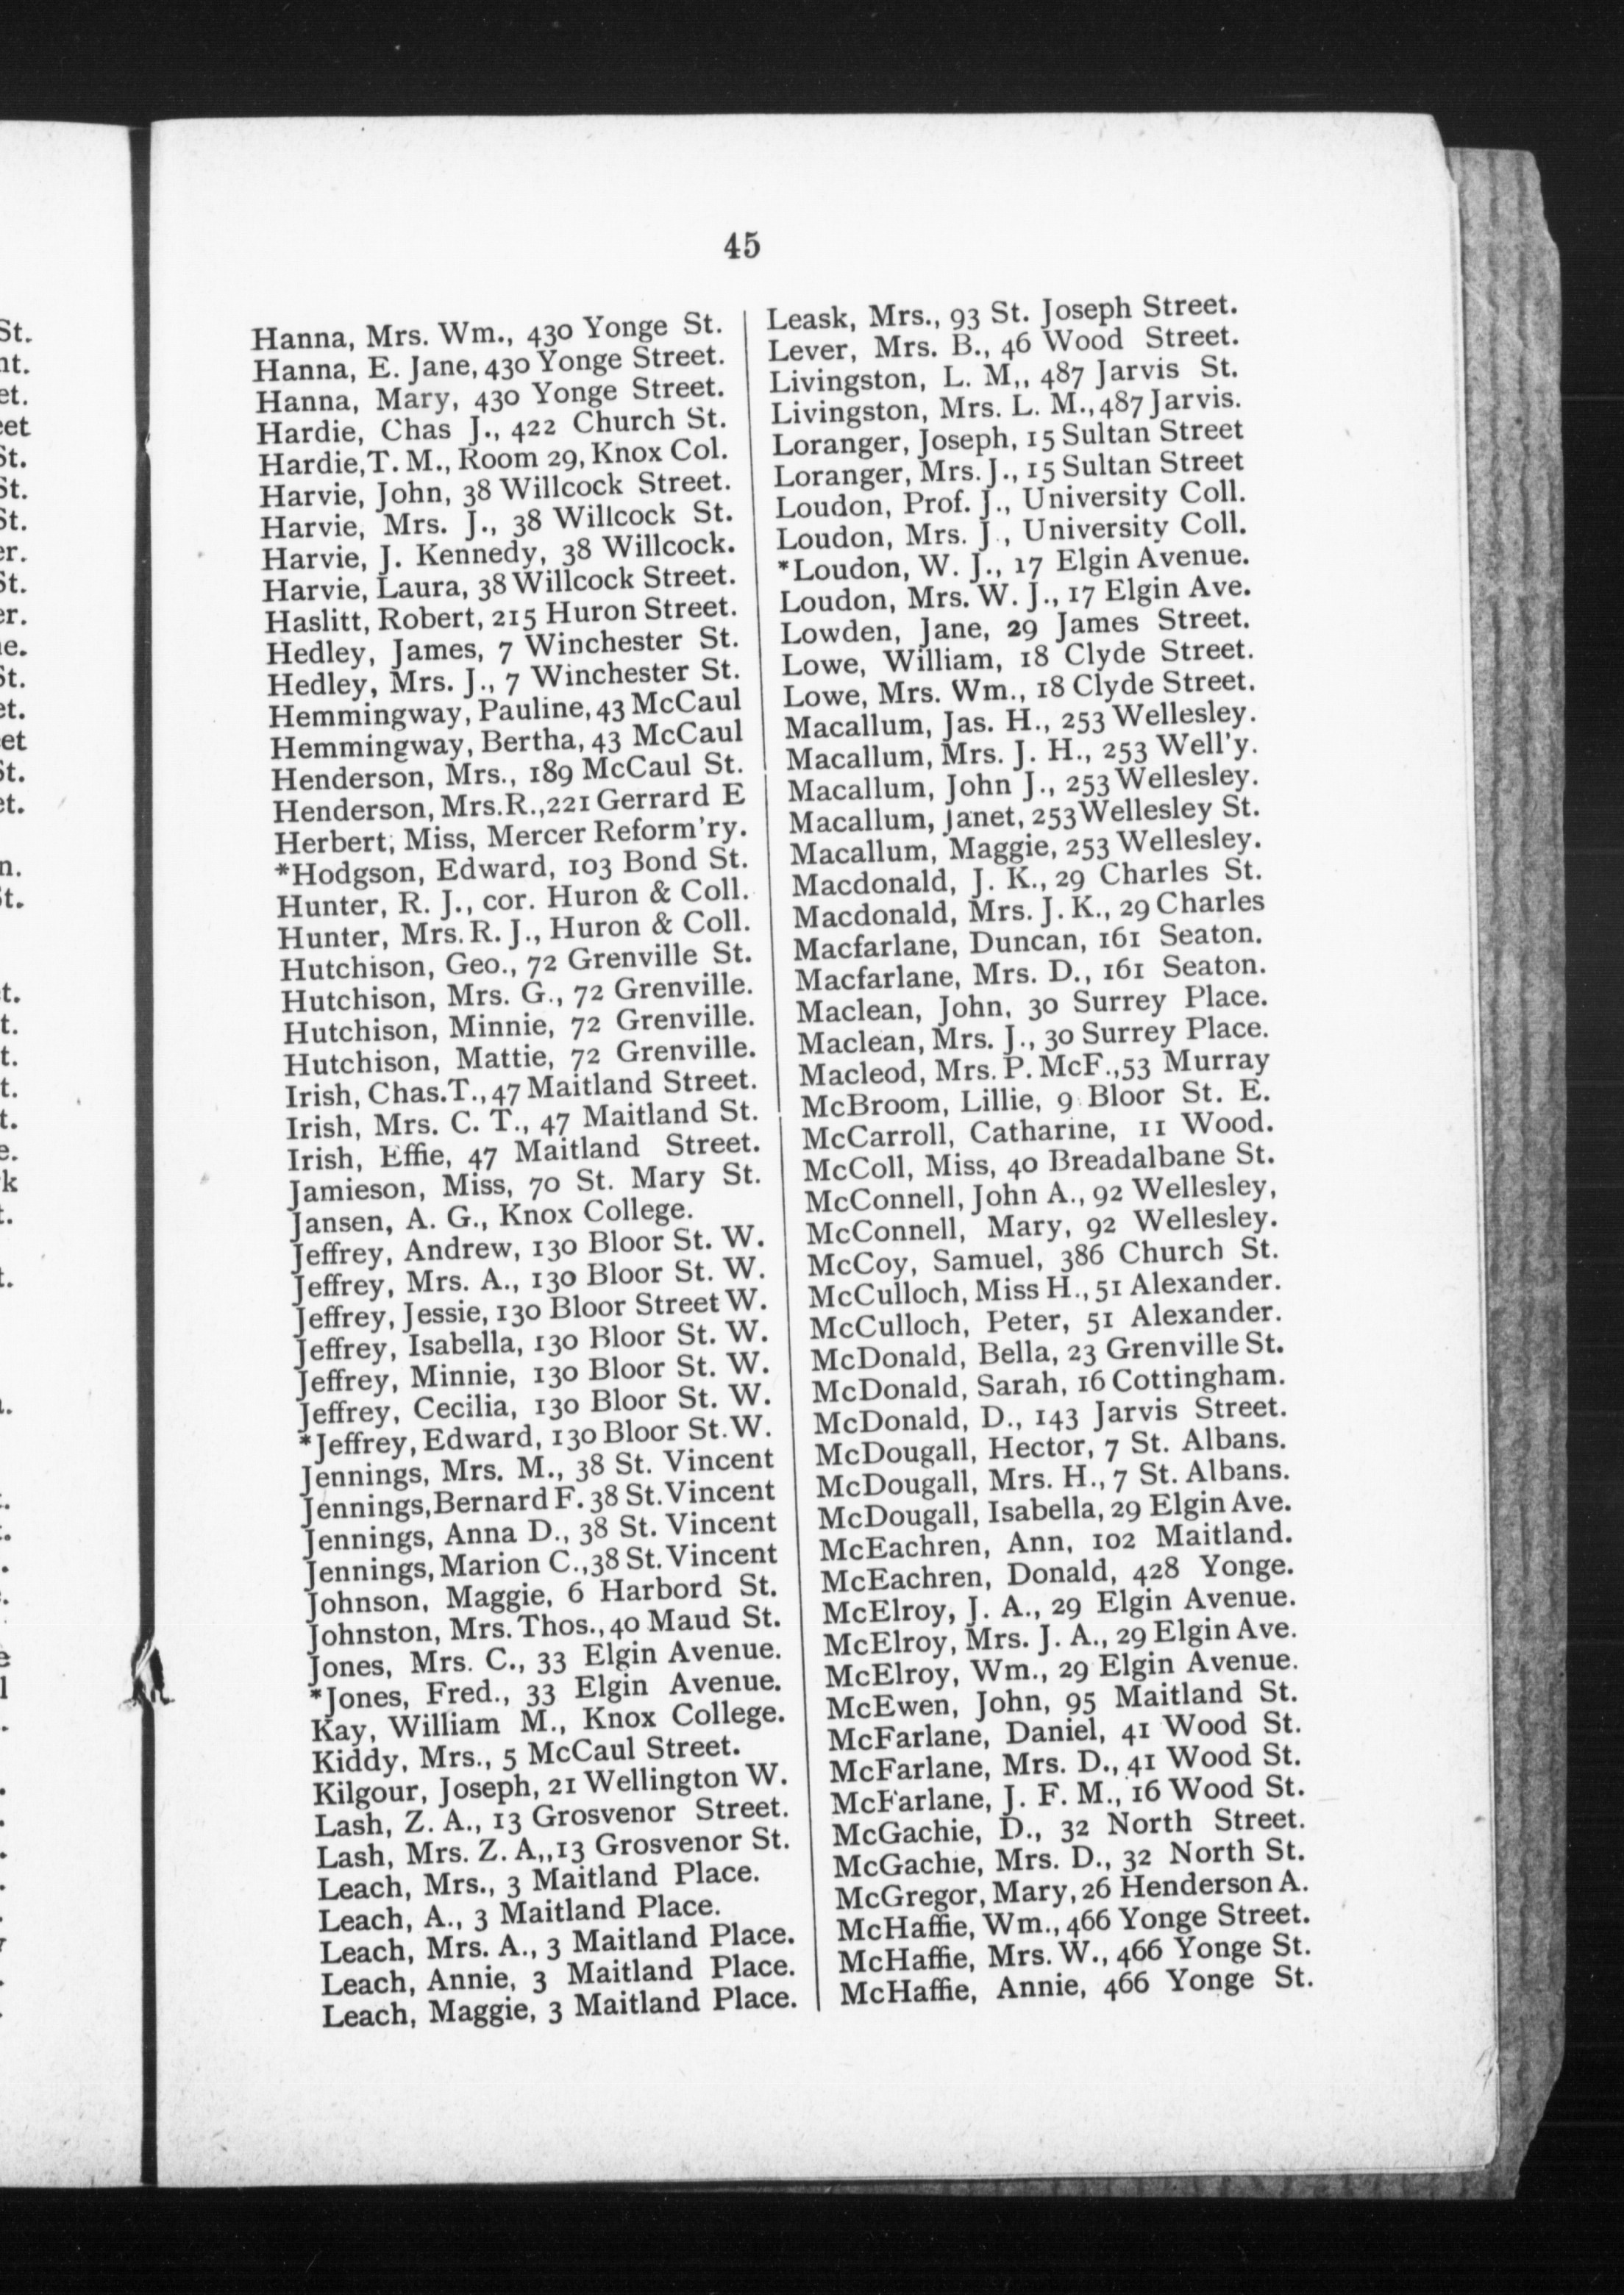 45
Hanna, Mrs. Wm., 430 Yonge St.
Hanna, E. Jane, 430 Yonge Street.
Hanna, Mary, 430 Yonge Street.
Hardie, Chas J., 422 Church St.
Hardie, T. M., Room 29, Knox Col.
Harvie, John, 38 Willcock Street.
Harvie, Mrs. J., 38 Willcock St.
Harvie, J. Kennedy, 38 Willcock.
Harvie, Laura, 38 Willcock Street.
Haslitt, Robert, 215 Huron Street.
Hedley, James, 7 Winchester St.
Hedley, Mrs. J., 7 Winchester St.
Hemmingway, Pauline, 43 McCaul
Hemmingway, Bertha, 43 McCaul
Henderson, Mrs., 189 McCaul St.
Henderson, Mrs. R., 221 Gerrard E
Herbert, Miss, Mercer Reform'ry.
*Hodgson, Edward, 103 Bond St.
Hunter, R. J., cor. Huron & Coll.
Hunter, Mrs. R. J., Huron & Coll.
Hutchison, Geo., 72 Grenville St.
Hutchison, Mrs. G., 72 Grenville.
Hutchison, Minnie, 72 Grenville.
Hutchison, Mattie, 72 Grenville.
Irish, Chas. T., 47 Maitland Street.
Irish, Mrs. C. T., 47 Maitland St.
Irish, Effie, 47 Maitland Street.
Jamieson, Miss, 70 St. Mary St.
Jansen, A. G., Knox College.
Jeffrey, Andrew, 130 Bloor St. W.
Jeffrey, Mrs. A., 130 Bloor St. W.
Jeffrey, Jessie, 130 Bloor Street W.
Jeffrey, Isabella, 130 Bloor St. W.
Jeffrey, Minnie, 130 Bloor St. W.
Jeffrey, Cecilia, 130 Bloor St. W.
*Jeffrey, Edward, 130 Bloor St. W.
Jennings, Mrs. M., 38 St. Vincent
Jennings, Bernard F. 38 St. Vincent
Jennings, Anna D., 38 St. Vincent
Jennings, Marion C., 38 St. Vincent
Johnson, Maggie, 6 Harbord St.
Johnston, Mrs. Thos., 40 Maud St.
Jones, Mrs. C., 33 Elgin Avenue.
*Jones, Fred., 33 Elgin Avenue.
Kay, William M., Knox College.
Kiddy, Mrs., 5 McCaul Street.
Kilgour, Joseph, 21 Wellington W.
Lash, Z. A., 13 Grosvenor Street.
Lash, Mrs. Z. A,,13 Grosvenor St.
Leach, Mrs., 3 Maitland Place.
Leach, A., 3 Maitland Place.
Leach, Mrs. A., 3 Maitland Place.
Leach, Annie, 3 Maitland Place.
Leach, Maggie, 3 Maitland Place.
Leask, Mrs., 93 St. Joseph Street.
Lever, Mrs. B., 46 Wood Street.
Livingston, L. M,, 487 Jarvis St.
Livingston, Mrs. L. M., 487 Jarvis.
Loranger, Joseph, 15 Sultan Street
Loranger, Mrs. J., 15 Sultan Street
Loudon, Prof. J., University Coll.
Loudon, Mrs. J., University Coll.
*Loudon, W. J., 17 Elgin Avenue.
Loudon, Mrs. W. J., 17 Elgin Ave.
Lowden, Jane, 29 James Street.
Lowe, William, 18 Clyde Street.
Lowe, Mrs. Wm., 18 Clyde Street.
Macallum, Jas. H., 253 Wellesley.
Macallum, Mrs. J. H., 253 Well'y.
Macallum, John J., 253 Wellesley.
Macallum, Janet, 253 Wellesley St.
Macallum, Maggie, 253 Wellesley.
Macdonald, J. K., 29 Charles St.
Macdonald, Mrs. J. K., 29 Charles
Macfarlane, Duncan, 161 Seaton.
Macfarlane, Mrs. D., 161 Seaton.
Maclean, John, 30 Surrey Place.
Maclean, Mrs. J., 30 Surrey Place.
Macleod, Mrs. P. McF., 53 Murray
McBroom, Lillie, 9 Bloor St. E.
McCarroll, Catharine, 11 Wood.
McColl, Miss, 40 Breadalbane St.
McConnell, John A., 92 Wellesley,
McConnell, Mary, 92 Wellesley.
McCoy, Samuel, 386 Church St.
McCulloch, Miss H., 51 Alexander.
McCulloch, Peter, 51 Alexander.
McDonald, Bella, 23 Grenville St.
McDonald, Sarah, 16 Cottingham.
McDonald, D., 143 Jarvis Street.
McDougall, Hector, 7 St. Albans.
McDougall, Mrs. H., 7 St. Albans.
McDougall, Isabella, 29 Elgin Ave.
McEachren, Ann, 102 Maitland.
McEachren, Donald, 428 Yonge.
McElroy, J. A., 29 Elgin Avenue.
McElroy, Mrs. J. A., 29 Elgin Ave.
McElroy, Wm., 29 Elgin Avenue.
McEwen, John, 95 Maitland St.
McFarlane, Daniel, 41 Wood St.
McFarlane, Mrs. D., 41 Wood St.
McFarlane, J. F. M., 16 Wood St.
McGachie, D., 32 North Street.
McGachie, Mrs. D., 32 North St.
McGregor, Mary, 26 Henderson A.
McHaffie, Wm., 466 Yonge Street.
McHaffie, Mrs. W., 466 Yonge St.
McHaffie, Annie, 466 Yonge St.